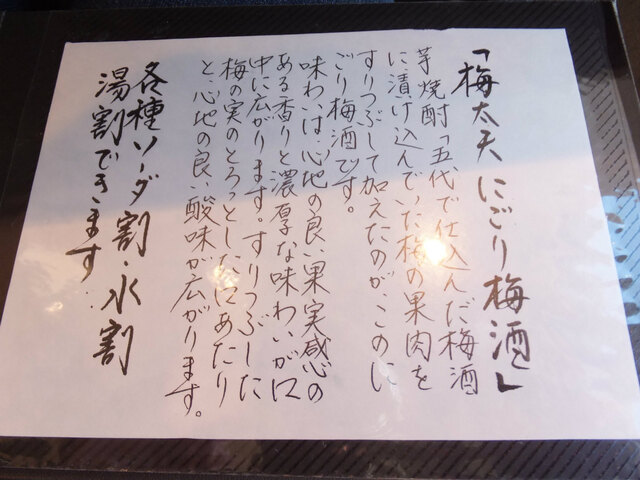 「梅太夫 にごり梅酒」
芋焼酎「五代で仕込んだ梅酒
に漬け込んでいた梅の果肉を
すりつぶして加えたのが、このに
ごり梅酒です。
味わいは、心地の良い果実感の
ある香りと濃厚な味わいが口
中に広がります。すりつぶした
梅の実のとろっとした口あたり
と、心地の良い酸味が広がります。
各種ソーダ割・水割
湯割できます